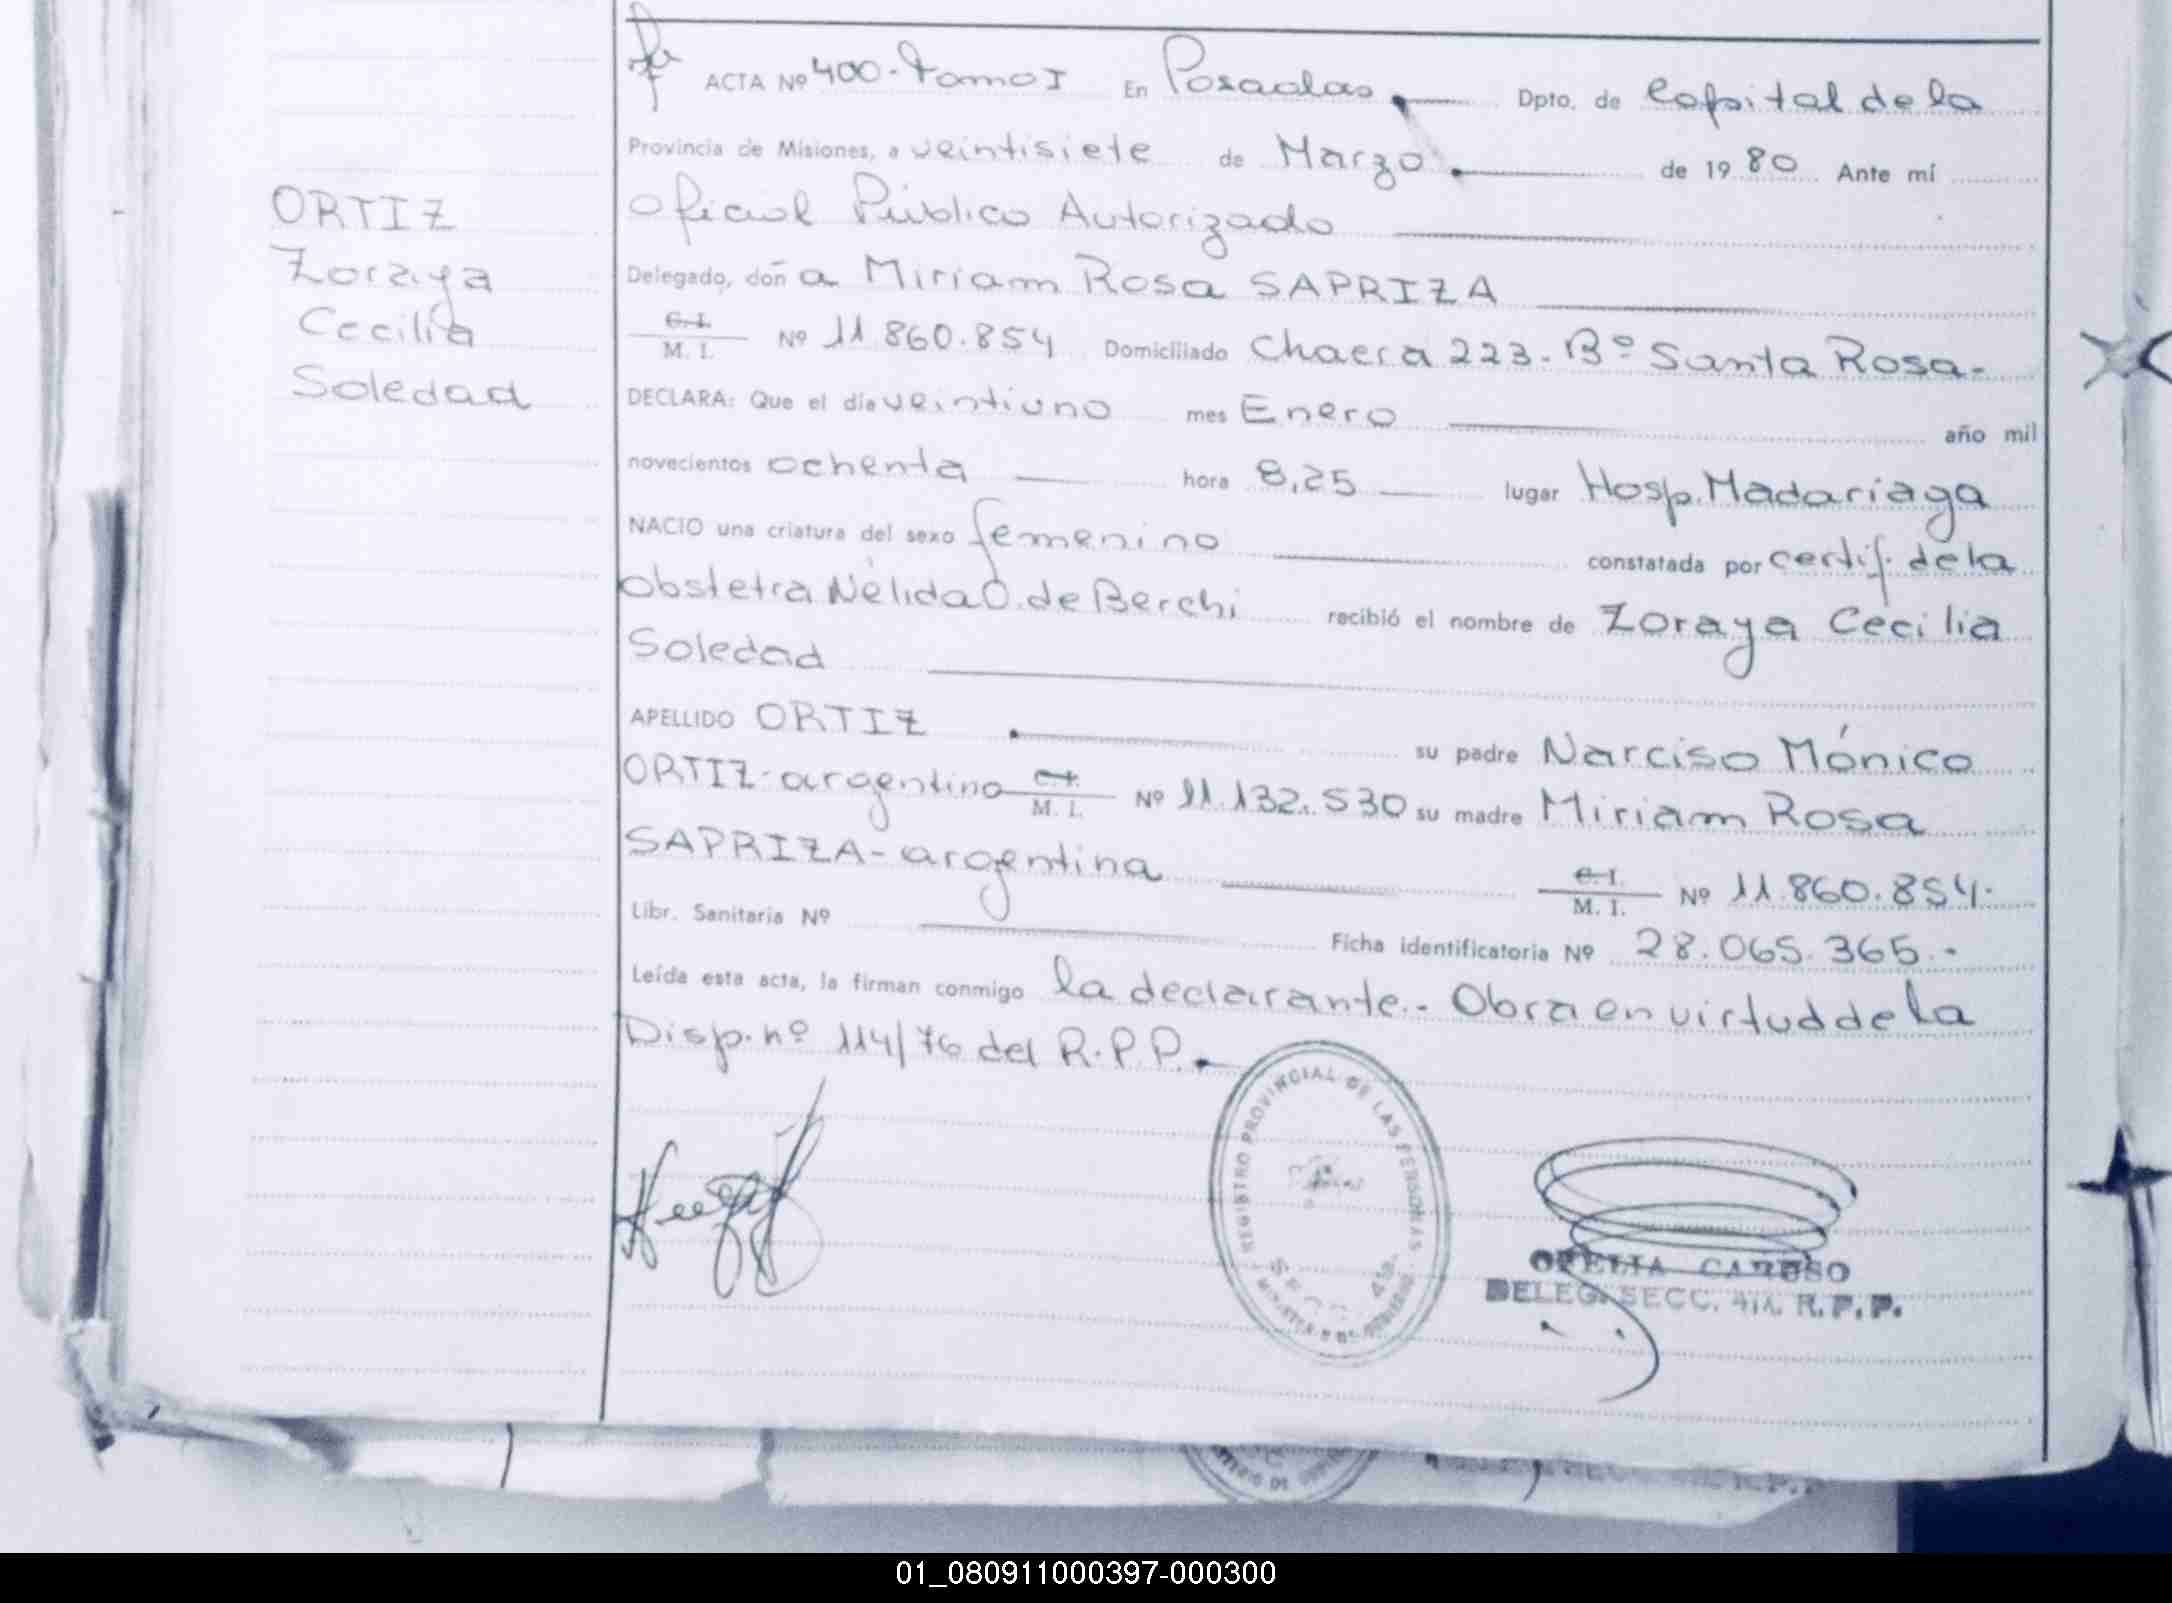 ACTA Nº 400 - Tomo I En Posadas Dpto. de Capital de la
Provincia de Misiones, a veintisiete de Marzo de 1980 Ante mí
Oficial Público Autorizado
Delegado, doña Miriam Rosa SAPRIZA
C.I. / M. I. Nº 11.860.854 Domiciliado Chacra 223 - Bº Santa Rosa.-
DECLARA: Que el día veintiuno mes Enero año mil
novecientos ochenta hora 8,25 lugar Hosp. Madariaga
NACIO una criatura del sexo femenino constatada por certif. de la
Obstetra Nélida O. de Berchi recibió el nombre de Zoraya Cecilia
Soledad
APELLIDO ORTIZ su padre Narciso Mónico
ORTIZ - argentino C.I. / M. I. Nº 11.132.530 su madre Miriam Rosa
SAPRIZA - argentina C.I. / M. I. Nº 11.860.854.-
Libr. Sanitaria Nº Ficha identificatoria Nº 28.065.365.-
Leída esta acta, la firman conmigo la declarante.- Obra en virtud de la
Disp. nº 114/76 del R.P.P.
ORTIZ
Zoraya
Cecilia
Soledad
REGISTRO PROVINCIAL DE LAS PERSONAS
SECC. 4ta.
OFELIA CARUSO
DELEG. SECC. 4ta. R.P.P.
01_080911000397-000300